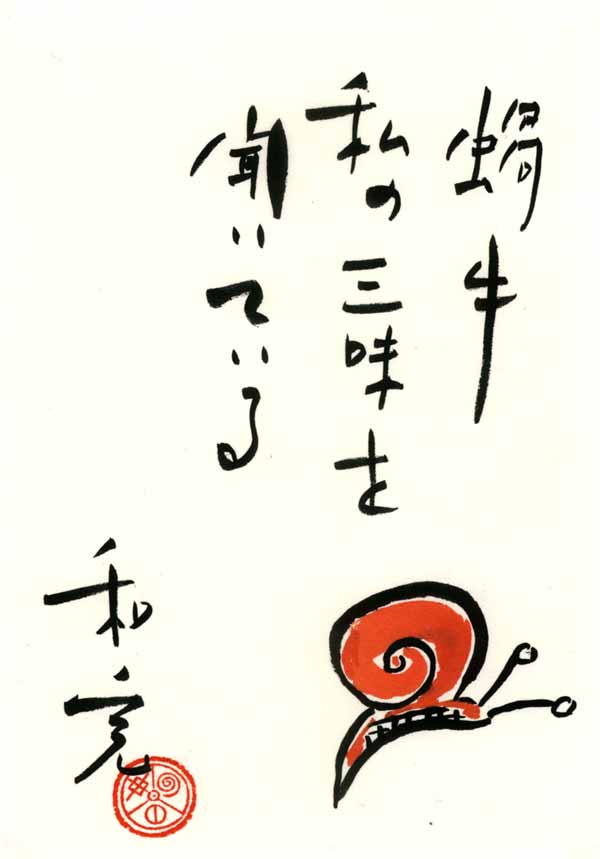 蝸牛
私の三味を
聞いている
和亮